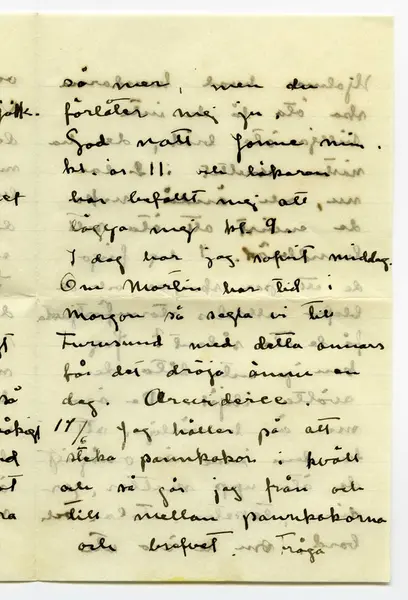 så mer, men du
förlåter mej ju.
God natt Jonne min.
kl. är 11 och läkaren
har befallt mej att
lägga mej kl. 9.
I dag har jag sofvit middag.
Om Martin har tid i
morgon så segla vi till
Furusund med detta annars
får det dröja ännu en
dag.
17/6 Jag håller på att
steka pannkakor i kväll
och så går jag från och
till mellan pannkakorna
och brefvet. Fråga